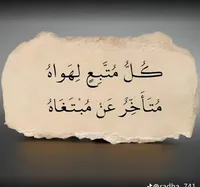 كُلُّ مُتَّبِعٍ لِهَواه
مُتَأَخِّرُ عَنْ مُبْتَغَاهُ
@radha_741